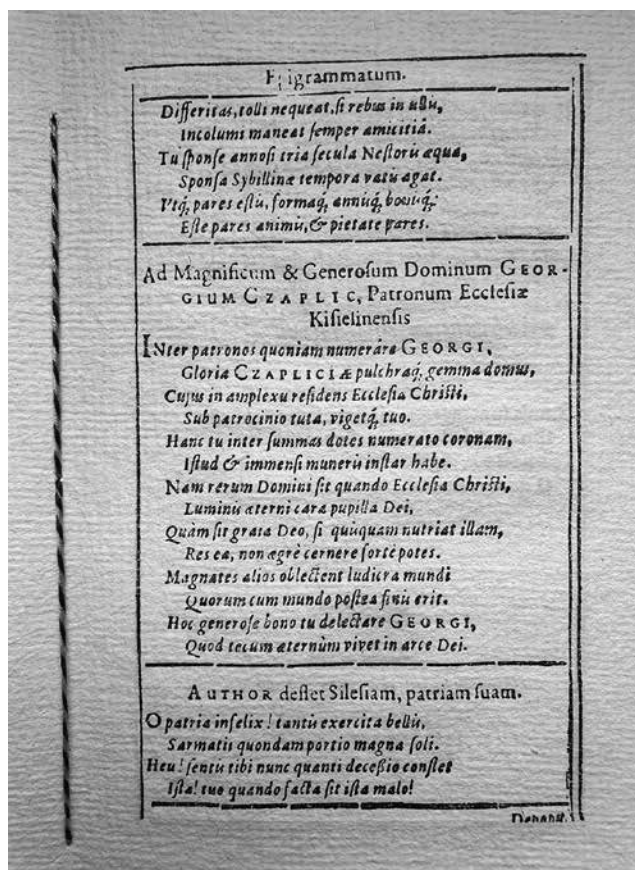 Epigrammatum.
Differitas, tolli nequeat, si rebus in ullis,
Incolumi maneat semper amicitiâ.
Tu sponse annosi tria secula Nestoris æqua,
Sponsa Sybillinæ tempora vatis agat.
Vtq́; pares estis, formaq́; annisq́; bonisq́;
Este pares animis, & pietate pares.
Ad Magnificum & Generosum Dominum GEOR-
GIUM CZAPLIC, Patronum Ecclesiæ
Kisielinensis
INter patronos quoniam numerâre GEORGI,
Gloria CZAPLICIÆ pulchraq́; gemma domus,
Cujus in amplexu residens Ecclesia Christi,
Sub patrocinio tuta, vigetq́; tuo.
Hanc tu inter summas dotes numerato coronam,
Istud & immensi muneris instar habe.
Nam rerum Domini sit quando Ecclesia Christi,
Luminis æterni cara pupilla Dei,
Quàm sit grata Deo, si quisquam nutriat illam,
Res ea, non ægrè cernere fortè potes.
Magnates alios oblectent ludicra mundi
Quorum cum mundo postea finis erit.
Hoc generose bono tu delectare GEORGI,
Quod tecum æternùm vivet in arce Dei.
AUTHOR deflet Silesiam, patriam suam.
O patria infelix! tantis exercita bellis,
Sarmatis quondam portio magna soli.
Heu! sentis tibi nunc quanti decessio constet
Ista! tuo quando facta sit ista malo!